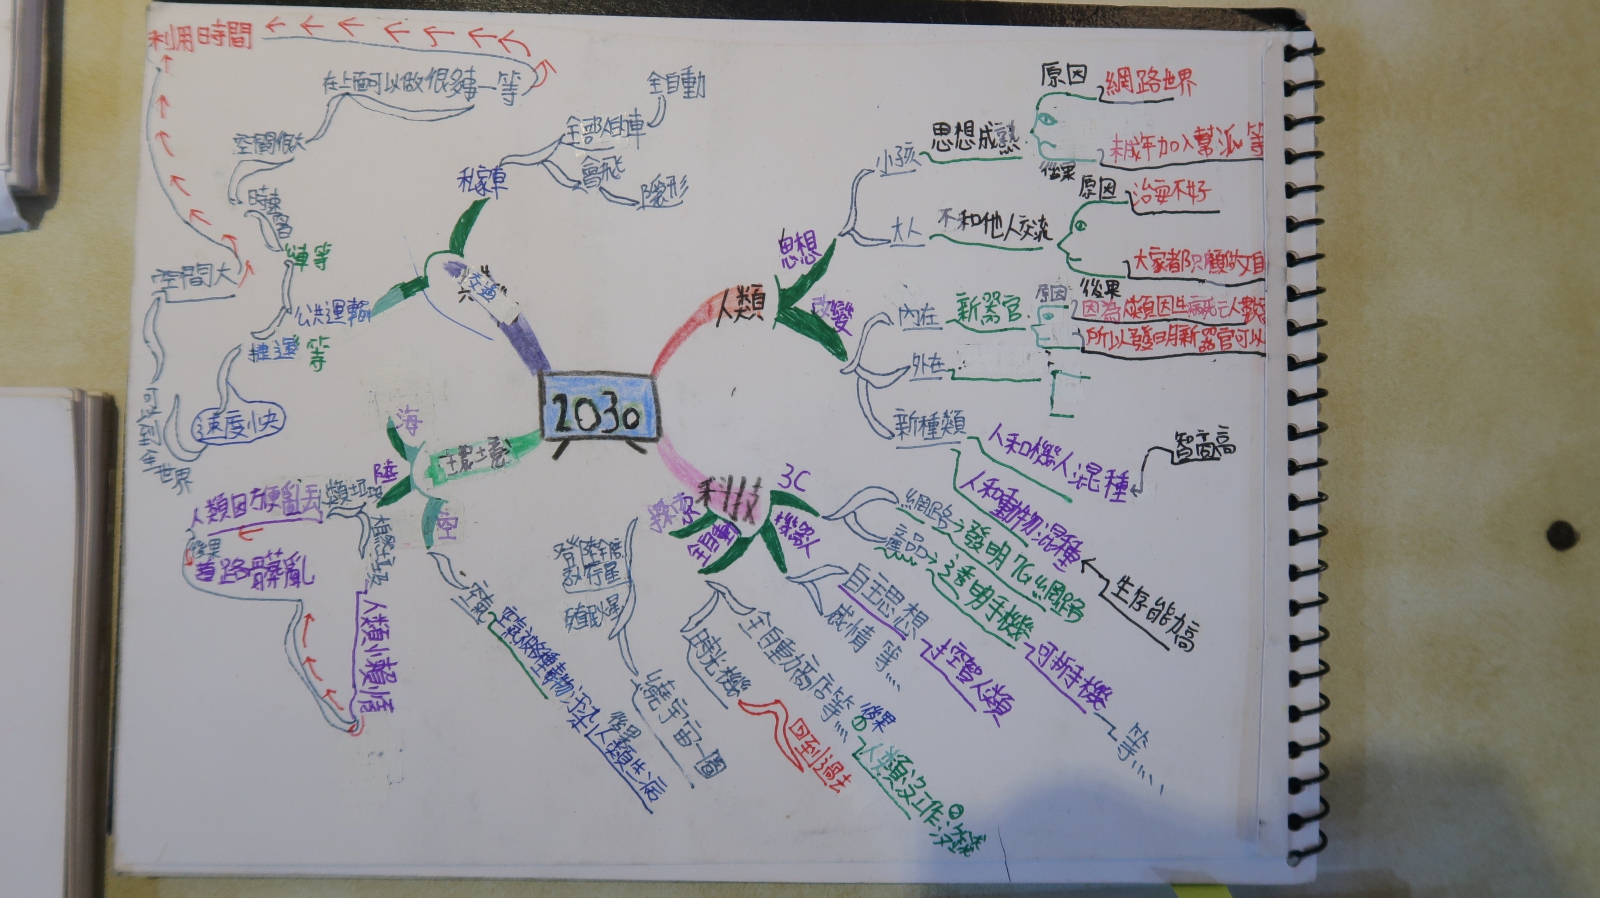 2030
人類
思想
小孩
思想成熟
原因
網路世界
後果
未成年加入幫派 等
大人
不和他人交流
原因
治安不好
後果
大家都只顧做自
改變
內在
新器官
原因
因為人類因生病死亡人數
所以發明新器官可以
外在
新種類
人和機人混種
智商高
人和動物混種
生存能力高
科技
3C
網路→發明7G網路
產品→透明手機
可折手機
等....
機器人
自主思想
控管人類
感情 等....
全自動
全自動商店等....
後果
①人類沒工作
②沒錢
時光機
回到過去
探索
殖民火星
繞宇宙一圈
環境
海
陸
人類因方便亂丟
後果
道路髒亂
人類小賴惰
空
空氣
空氣被種毒物汙染
後果
人類生病
交通
私家車
全部的車
全自動
會飛
隱形
公共運輸
捷運 等
速度快
可以到全世界
空間大
空間很大
在上面可以做很多事一等
利用時間